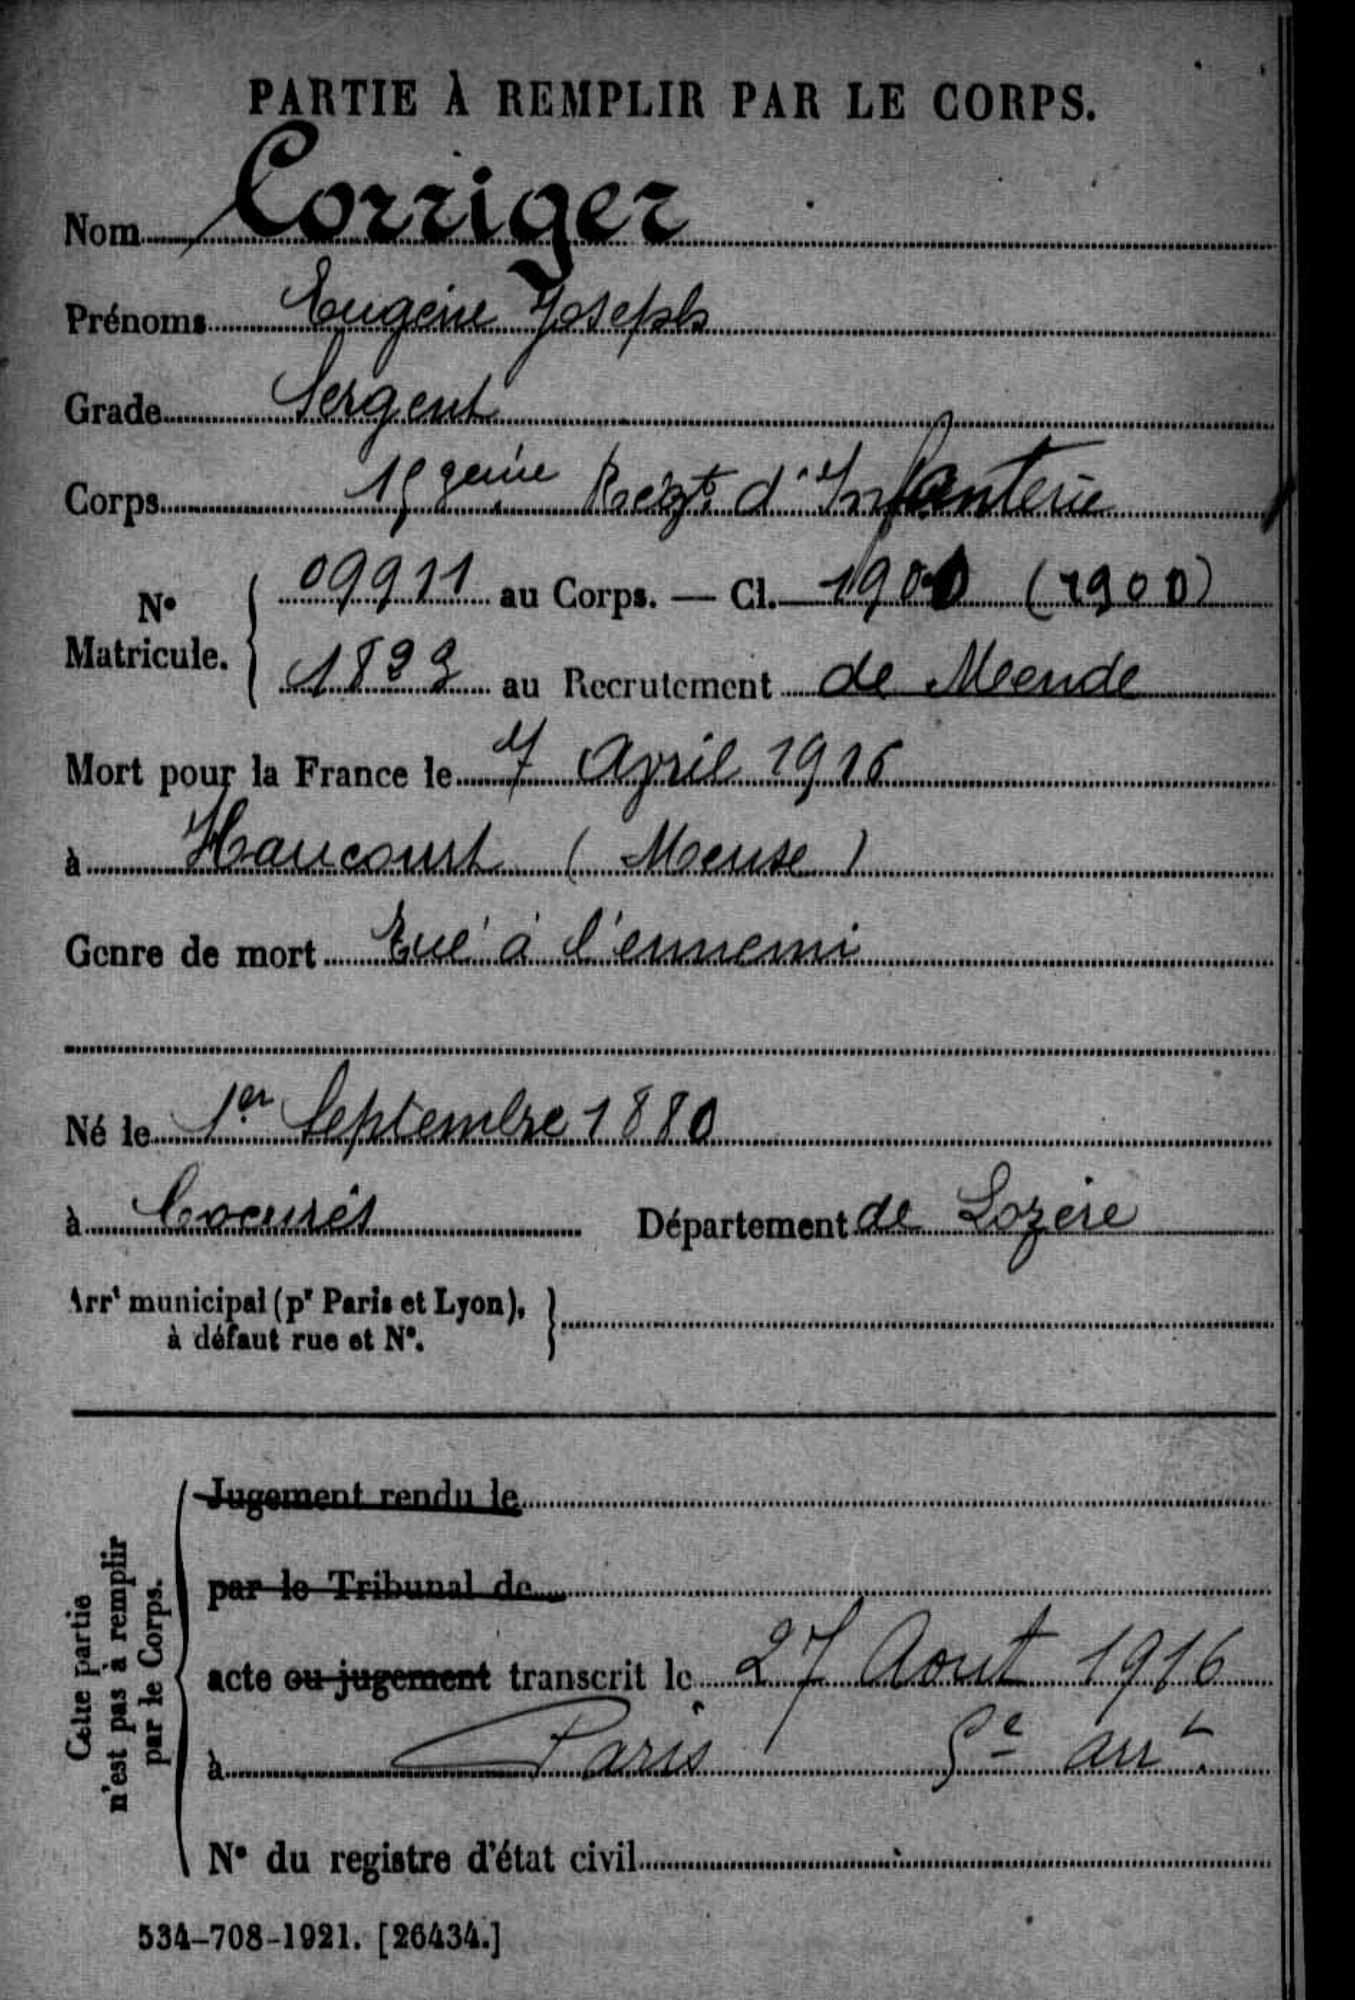 PARTIE À REMPLIR PAR LE CORPS.
Nom Corriger
Prénoms Eugène Joseph
Grade Sergent
Corps 159ème Régt d'Infanterie
N° Matricule. 09911 au Corps. — Cl. 1900 (1900)
1899 au Recrutement de Mende
Mort pour la France le 7 Avril 1916
à Haucourt (Meuse)
Genre de mort Tué à l'ennemi
Né le 1er Septembre 1880
à Cocurès Département de Lozère
Arrt municipal (pr Paris et Lyon),
à défaut rue et N°.
Cette partie
n'est pas à remplir
par le Corps.
Jugement rendu le
par le Tribunal de
acte ou jugement transcrit le 27 Août 1916
à Paris 5e arrt.
N° du registre d'état civil
534-708-1921. [26434.]